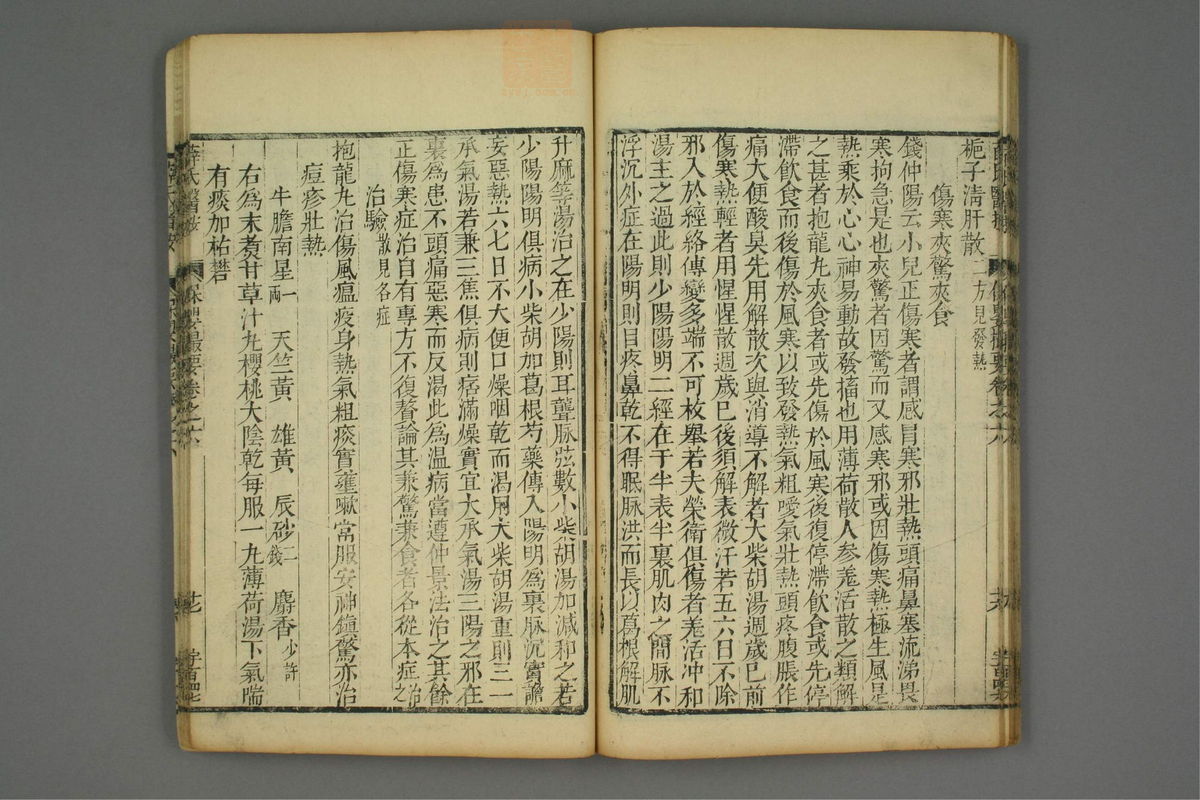 梔子清肝散二方見發熱
傷寒夾驚夾食
錢仲陽云小兒正傷寒者謂感冒寒邪壯熱頭痛鼻塞流涕畏
寒拘急是也夾驚者因驚而又感寒邪或因傷寒熱極生風是
熱乘於心心神易動故發搐也用薄荷散人參羗活散之類解
之甚者抱龍丸夾食者或先傷於風寒後復停滯飲食或先停
滯飲食而後傷於風寒以致發熱氣粗噯氣壯熱頭疼腹脹作
痛大便酸臭先用解散次與消導不解者大柴胡湯週歲已前
傷寒熱輕者用惺惺散週歲已後須解表微汗若五六日不除
邪入於經絡傳變多端不可枚舉若夫榮衛俱傷者羗活冲和
湯主之過此則少陽陽明二經在于半表半裏肌肉之間脉不
浮沉外症在陽明則目疼鼻乾不得眠脉洪而長以葛根解肌
升麻等湯治之在少陽則耳聾脉弦數小柴胡湯加減和之若
少陽陽明俱病小柴胡加葛根芍藥傳入陽明為裏脉沉實譫
妄惡熱六七日不大便口燥咽乾而渴用大柴胡湯重則三一
承氣湯若兼三焦俱病則痞滿燥實宜大承氣湯三陽之邪在
裏為患不頭痛惡寒而反渴此為温病當遵仲景法治之其餘
正傷寒症治自有專方不復贅論其兼驚兼食者各從本症治之
治驗散見各症
抱龍丸治傷風瘟疫身熱氣粗痰實壅嗽常服安神鎮驚亦治
痘疹壯熱
牛膽南星一兩　天竺黃　雄黃　辰砂二錢　麝香少許
右為末煑甘草汁丸櫻桃大陰乾每服一丸薄荷湯下氣喘
有痰加祐礬